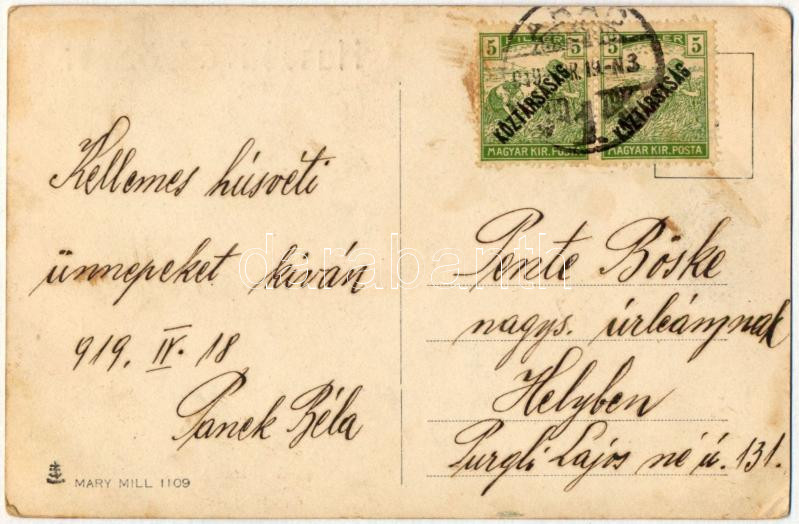 5 FILLÉR 5
KÖZTÁRSASÁG
MAGYAR KIR. POSTA
5 FILLÉR 5
KÖZTÁRSASÁG
MAGYAR KIR. POSTA
ARAD
Kellemes húsvéti
ünnepeket kiván
919. IV. 18
Panek Béla
Pente Böske
nagys. úrleánynak
Helyben
Purgli Lajos né ú. 131.
MARY MILL 1109
darabanth